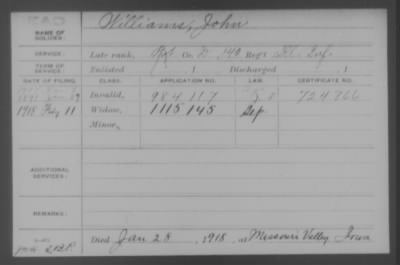 NAME OF SOLDIER: Williams, John
SERVICE: Late rank, Co. D, 149 Reg't Ill. Inf.
TERM OF SERVICE: Enlisted , 1 Discharged , 1
DATE OF FILING. CLASS. APPLICATION NO. LAW. CERTIFICATE NO.
1891 Invalid, 984 117 724 766
1918 Feby 11 Widow, 1115 145
Minor,
ADDITIONAL SERVICES:
REMARKS:
Died Jan 28 , 1918, at Missouri Valley, Iowa